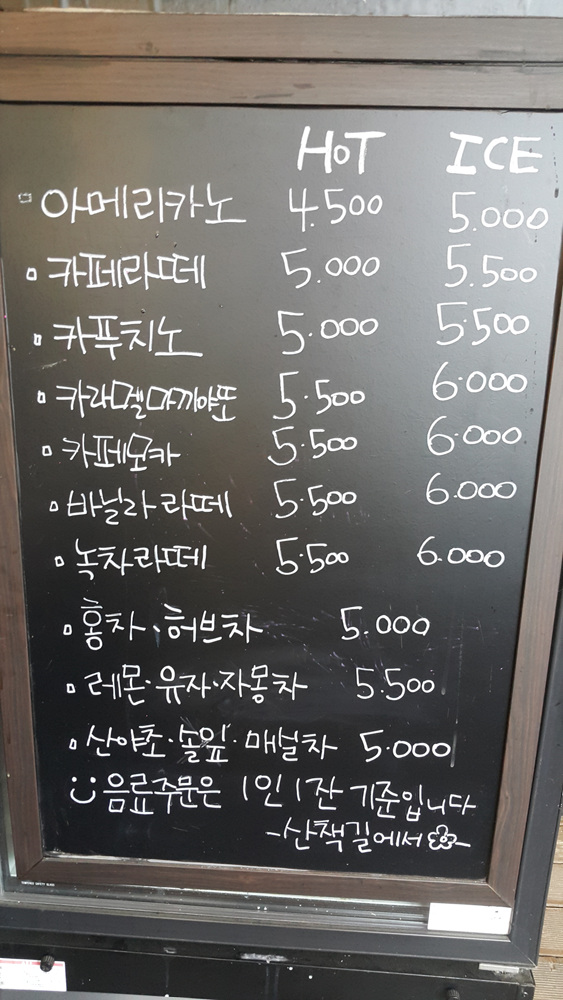 HOT ICE
아메리카노 4.500 5.000
카페라떼 5.000 5.500
카푸치노 5.000 5.500
카라멜마끼야또 5.500 6.000
카페모카 5.500 6.000
바닐라라떼 5.500 6.000
녹차라떼 5.500 6.000
홍차·허브차 5.000
레몬·유자·자몽차 5.500
산야초·솔잎·매실차 5.000
음료주문은 1인 1잔 기준입니다
-산책길에서-